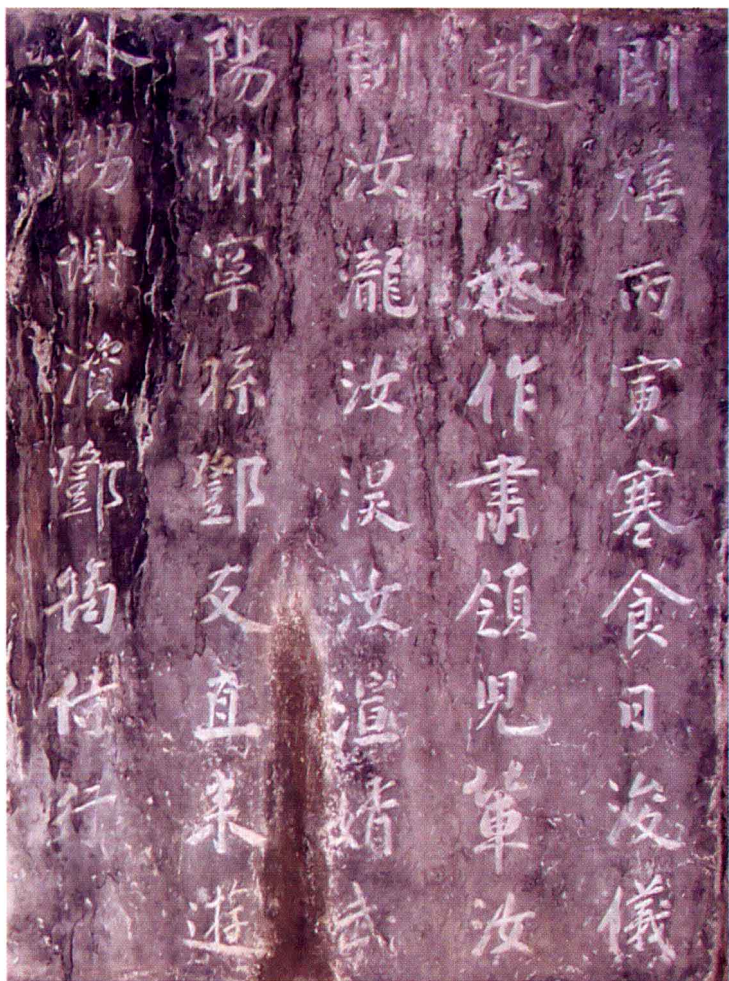 開禧丙寅寒食日浚儀
趙善恭作肅領兒輩汝
汝瀧汝淏汝渲婿武
陽謝寧孫鄧友直來遊
外甥謝濱鄧侍行